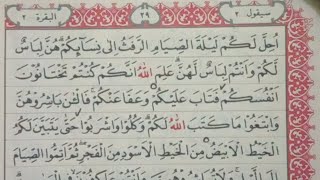 سيقول ٢ ٢٩ البقرة ٢
اُحِلَّ لَكُمْ لَيْلَةَ الصِّيَامِ الرَّفَثُ اِلٰى نِسَآئِكُمْ هُنَّ لِبَاسٌ
لَكُمْ وَاَنْتُمْ لِبَاسٌ لَهُنَّ عَلِمَ اللّٰهُ اَنَّكُمْ كُنْتُمْ تَخْتَانُوْنَ
اَنْفُسَكُمْ فَتَابَ عَلَيْكُمْ وَعَفَا عَنْكُمْ فَالْـٰٔنَ بَاشِرُوْهُنَّ
وَابْتَغُوْا مَا كَتَبَ اللّٰهُ لَكُمْ وَكُلُوْا وَاشْرَبُوْا حَتّٰى يَتَبَيَّنَ لَكُمُ
الْخَيْطُ الْاَبْيَضُ مِنَ الْخَيْطِ الْاَسْوَدِ مِنَ الْفَجْرِ ثُمَّ اَتِمُّوا الصِّيَامَ